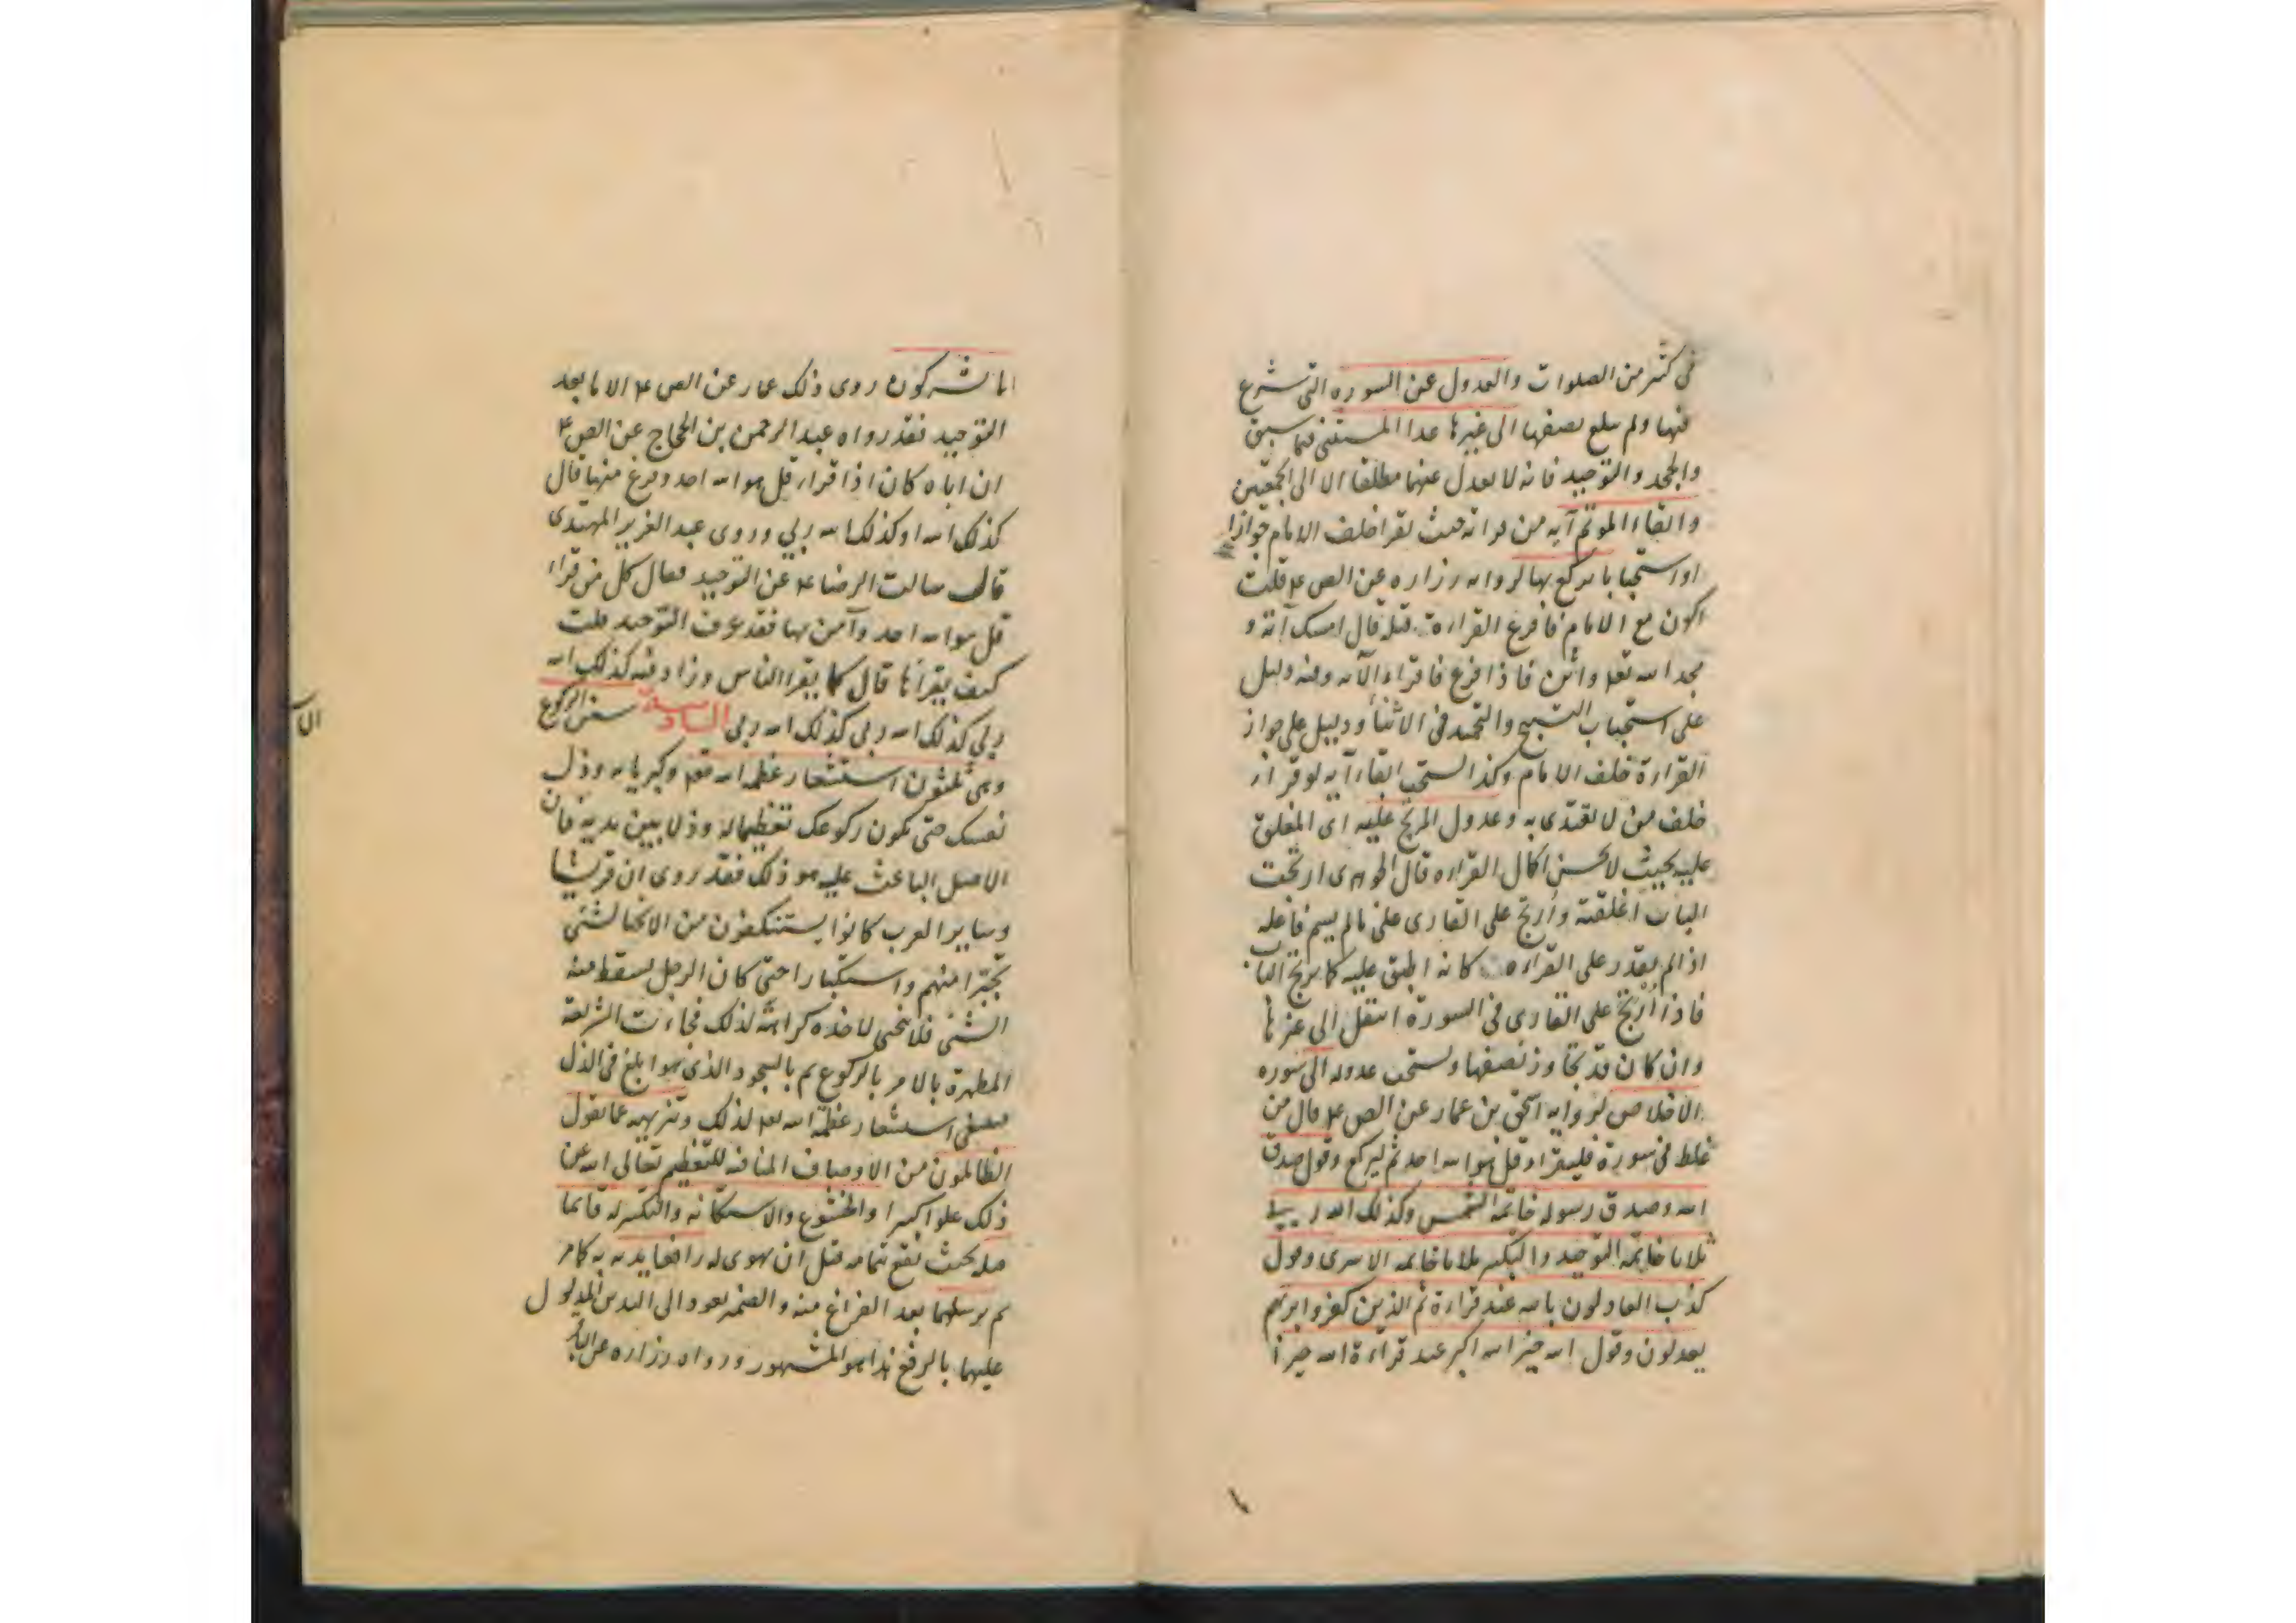 في كثير من الصلوات والعدول عن السورة التي شرع
فيها ولم يبلغ نصفها الى غيرها عدا المستثنى فيما سبق
والجحد والتوحيد فانه لا يعدل عنهما مطلقا الا الى الجمعتين
وابقاء المؤتم آية من قراءته حيث يقرأ خلف الامام جوازا
او استحبابا يركع بها لرواية زرارة عن الص ع قلت
اكون مع الامام فافرغ القراءة قبله قال امسك آية و
مجد الله تعالى واثن فاذا فرغ فاقراء الآية وفيه دليل
على استحباب التسبيح والتحميد في الاثناء ودليل على جواز
القراءة خلف الامام وكذا يستحب ابقاء آية لو قراء
خلف من لا يقتدى به وعدول المرتج عليه اى المغلق
عليه بحيث لا يحسن اكمال القراءة قال الجوهرى ارتجت
الباب اغلقته وأرتج على القارى على ما لم يسم فاعله
اذا لم يقدر على القراءة كانه اطبق عليه كما يرتج الباب
فاذا أرتج على القارى في السورة انتقل الى غيرها
وان كان قد تجاوز نصفها ويستحب عدوله الى سورة
الاخلاص لرواية اسحق بن عمار عن الص ع قال من
غلط في سورة فليقراء قل هو الله احد ثم ليركع وقول صدق
الله وصدق رسوله خاتمة الشمس وكذلك الله ربي
ثلاثا خاتمة التوحيد والتكبير ثلاثا خاتمة الاسرى وقول
كذب العادلون بالله عند قراءة ثم الذين كفروا بربهم
يعدلون وقول الله خير الله اكبر عند قراءة الله خير أ
اما شركون روى ذلك عمار عن الص ع الا ما بعد
التوحيد فقد رواه عبد الرحمن بن الحجاج عن الص ع
ان اباه كان اذا قراء قل هو الله احد وفرغ منها قال
كذلك الله او كذلك الله ربي وروى عبد العزيز المهتدى
قال سالت الرضا ع عن التوحيد فقال كل من قراء
قل هو الله احد وآمن بها فقد عرف التوحيد قلت
كيف يقرأها قال كما يقرا الناس وزاد فيه كذلك الله
ربي كذلك الله ربي كذلك الله ربي السادسة سنن الركوع
وهي ثلثون استشعار عظمة الله تعالى وكبريائه وذل
نفسك حتى يكون ركوعك تعظيما له وذلا بين يديه فان
الاصل الباعث عليه هو ذلك فقد روى ان قريشا
وساير العرب كانوا يستنكفون من الانحنا لشئ
تجبرا منهم واستكبارا حتى كان الرجل يسقط منه
الشئ فلا ينحنى لاخذه كراهة لذلك فجاءت الشريعة
المطهرة بالامر بالركوع ثم بالسجود الذى هوا بلغ في الذل
استشعار عظمة الله تعالى لذلك وتنزيهه عما يقول
الظالمون من الاوصاف المنافية للتعظيم تعالى الله عن
ذلك علوا كبيرا والخشوع والاستكانة والتكبير له قائما
قبله بحيث يقع تمامه قبل ان يهوى له رافعا يديه به كما مر
ثم يرسلهما بعد الفراغ منه والضمير يعود الى اليدين المدلول
عليهما بالرفع هذا هو المشهور ورواه زرارة عن الباقر